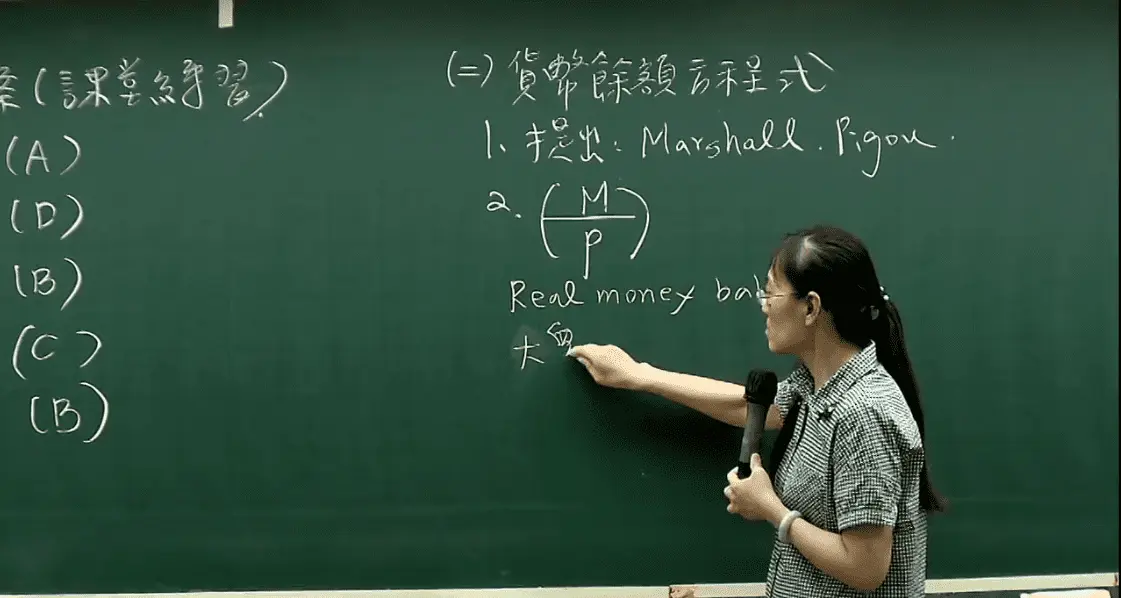 案(課堂練習)
(A)
(D)
(B)
(C)
(B)
(二) 貨幣餘額方程式
1. 提出: Marshall. Pigou.
2. (M/P)
Real money
大